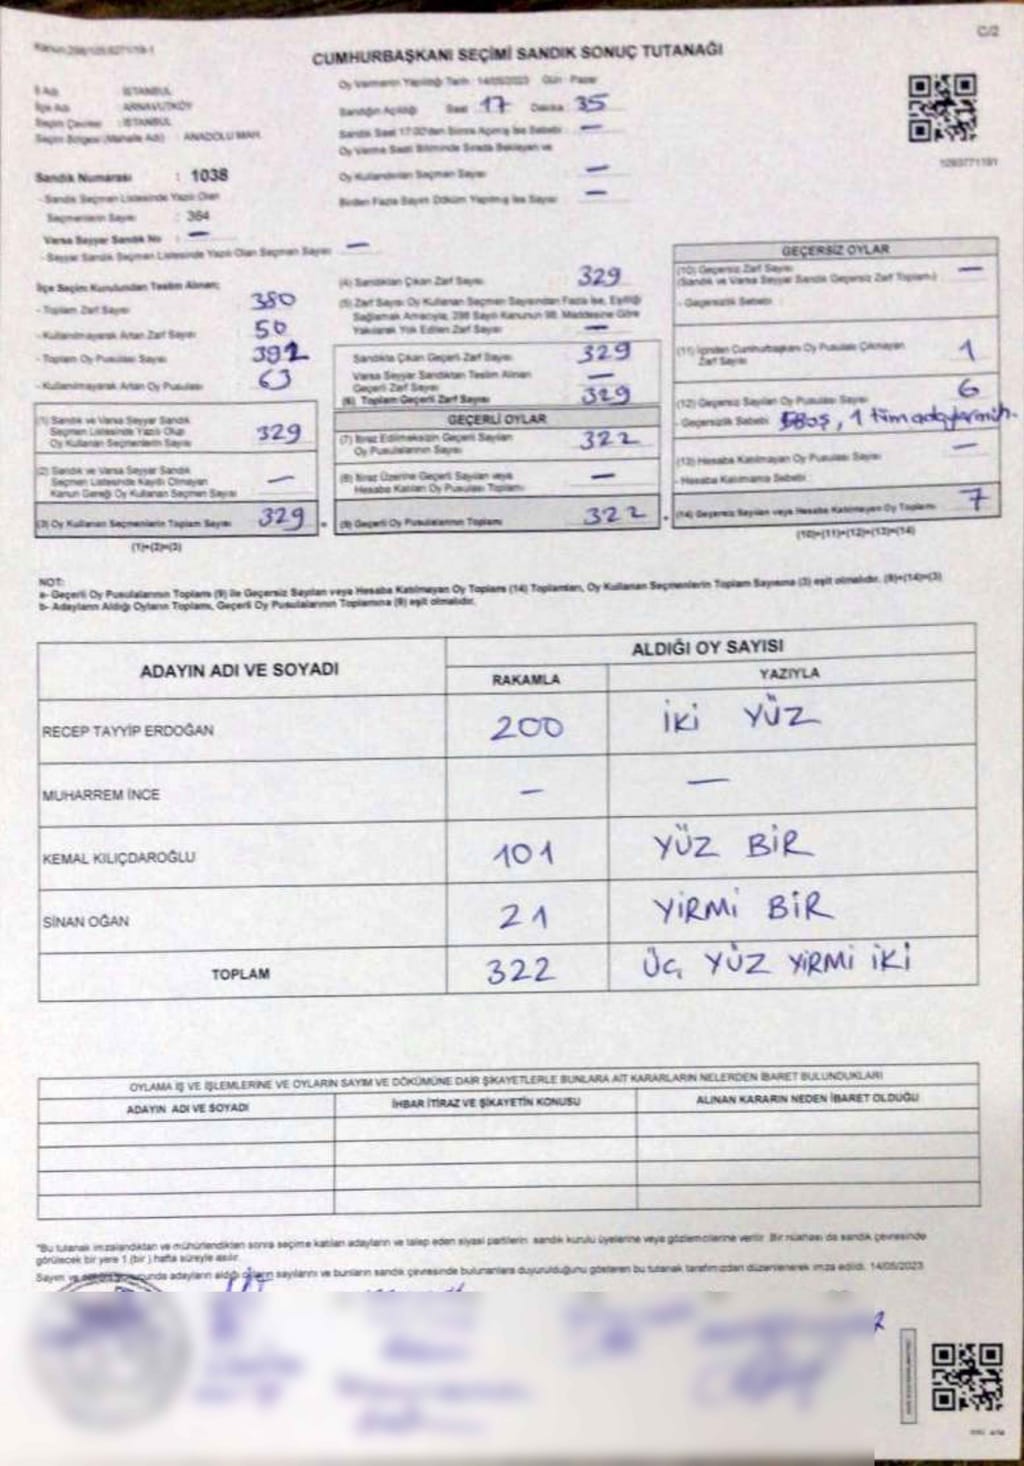 C/2
CUMHURBAŞKANI SEÇİMİ SANDIK SONUÇ TUTANAĞI
Oy Vermenin Yapıldığı Tarih : 14/05/2023 Gün : Pazar
İl Adı : İSTANBUL
İlçe Adı : ARNAVUTKÖY
Seçim Çevresi : İSTANBUL
Seçim Bölgesi (Mahalle Adı) : ANADOLU MAH.
Sandığın Açıldığı Saat 17 Dakika 35
Sandık Saat 17:00'den Sonra Açılmış İse Sebebi : —
Oy Verme Saati Bitiminde Sırada Bekleyen ve
Oy Kullandırılan Seçmen Sayısı : —
Birden Fazla Sayım Döküm Yapılmış İse Sayısı : —
Sandık Numarası : 1038
- Sandık Seçmen Listesinde Yazılı Olan
Seçmenlerin Sayısı : 364
Varsa Seyyar Sandık No : —
- Seyyar Sandık Seçmen Listesinde Yazılı Olan Seçmen Sayısı : —
İlçe Seçim Kurulundan Teslim Alınan;
- Toplam Zarf Sayısı : 380
- Kullanılmayarak Artan Zarf Sayısı : 50
- Toplam Oy Pusulası Sayısı : 392
- Kullanılmayarak Artan Oy Pusulası : 63
(1) Sandık ve Varsa Seyyar Sandık
Seçmen Listesinde Yazılı Olup
Oy Kullanan Seçmenlerin Sayısı : 329
(2) Sandık ve Varsa Seyyar Sandık
Seçmen Listesinde Kayıtlı Olmayan
Kanun Gereği Oy Kullanan Seçmen Sayısı : —
(3) Oy Kullanan Seçmenlerin Toplam Sayısı : 329
(1)+(2)=(3)
(4) Sandıktan Çıkan Zarf Sayısı : 329
(5) Zarf Sayısı Oy Kullanan Seçmen Sayısından Fazla İse, Eşitliği
Sağlamak Amacıyla, 298 Sayılı Kanunun 98. Maddesine Göre
Yakılarak Yok Edilen Zarf Sayısı : —
Sandıkta Çıkan Geçerli Zarf Sayısı : 329
Varsa Seyyar Sandıktan Teslim Alınan
Geçerli Zarf Sayısı : —
(6) Toplam Geçerli Zarf Sayısı : 329
GEÇERLİ OYLAR
(7) İtiraz Edilmeksizin Geçerli Sayılan
Oy Pusulalarının Sayısı : 322
(8) İtiraz Üzerine Geçerli Sayılan veya
Hesaba Katılan Oy Pusulası Toplamı : —
(9) Geçerli Oy Pusulalarının Toplamı : 322
GEÇERSİZ OYLAR
(10) Geçersiz Zarf Sayısı : —
(Sandık ve Varsa Seyyar Sandık Geçersiz Zarf Toplamı)
- Geçersizlik Sebebi :
(11) İçinden Cumhurbaşkanı Oy Pusulası Çıkmayan
Zarf Sayısı : 1
(12) Geçersiz Sayılan Oy Pusulası Sayısı : 6
- Geçersizlik Sebebi : 5 Boş, 1 tüm adaylar müh.
(13) Hesaba Katılmayan Oy Pusulası Sayısı : —
- Hesaba Katılmama Sebebi :
(14) Geçersiz Sayılan veya Hesaba Katılmayan Oy Toplamı : 7
(10)+(11)+(12)+(13)=(14)
NOT:
a- Geçerli Oy Pusulalarının Toplamı (9) ile Geçersiz Sayılan veya Hesaba Katılmayan Oy Toplamı (14) Toplamları, Oy Kullanan Seçmenlerin Toplam Sayısına (3) eşit olmalıdır. (9)+(14)=(3)
b- Adayların Aldığı Oyların Toplamı, Geçerli Oy Pusulalarının Toplamına (9) eşit olmalıdır.
ADAYIN ADI VE SOYADI
ALDIĞI OY SAYISI
RAKAMLA YAZIYLA
RECEP TAYYİP ERDOĞAN 200 İKİ YÜZ
MUHARREM İNCE — —
KEMAL KILIÇDAROĞLU 101 YÜZ BİR
SİNAN OĞAN 21 YİRMİ BİR
TOPLAM 322 ÜÇ YÜZ YİRMİ İKİ
OYLAMA İŞ VE İŞLEMLERİNE VE OYLARIN SAYIM VE DÖKÜMÜNE DAİR ŞİKAYETLERLE BUNLARA AİT KARARLARIN NELERDEN İBARET BULUNDUKLARI
ADAYIN ADI VE SOYADI İHBAR İTİRAZ VE ŞİKAYETİN KONUSU ALINAN KARARIN NEDEN İBARET OLDUĞU
*Bu tutanak imzalandıktan ve mühürlendikten sonra seçime katılan adayların ve talep eden siyasi partilerin sandık kurulu üyelerine veya gözlemcilerine verilir. Bir nüshası da sandık çevresinde
görülecek bir yere 1 (bir) hafta süreyle asılır.
Sayım ve döküm sonucunda adayların aldığı oyların sayılarını ve bunların sandık çevresinde bulunanlara duyurulduğunu gösteren bu tutanak tarafımızdan düzenlenerek imza edildi. 14/05/2023